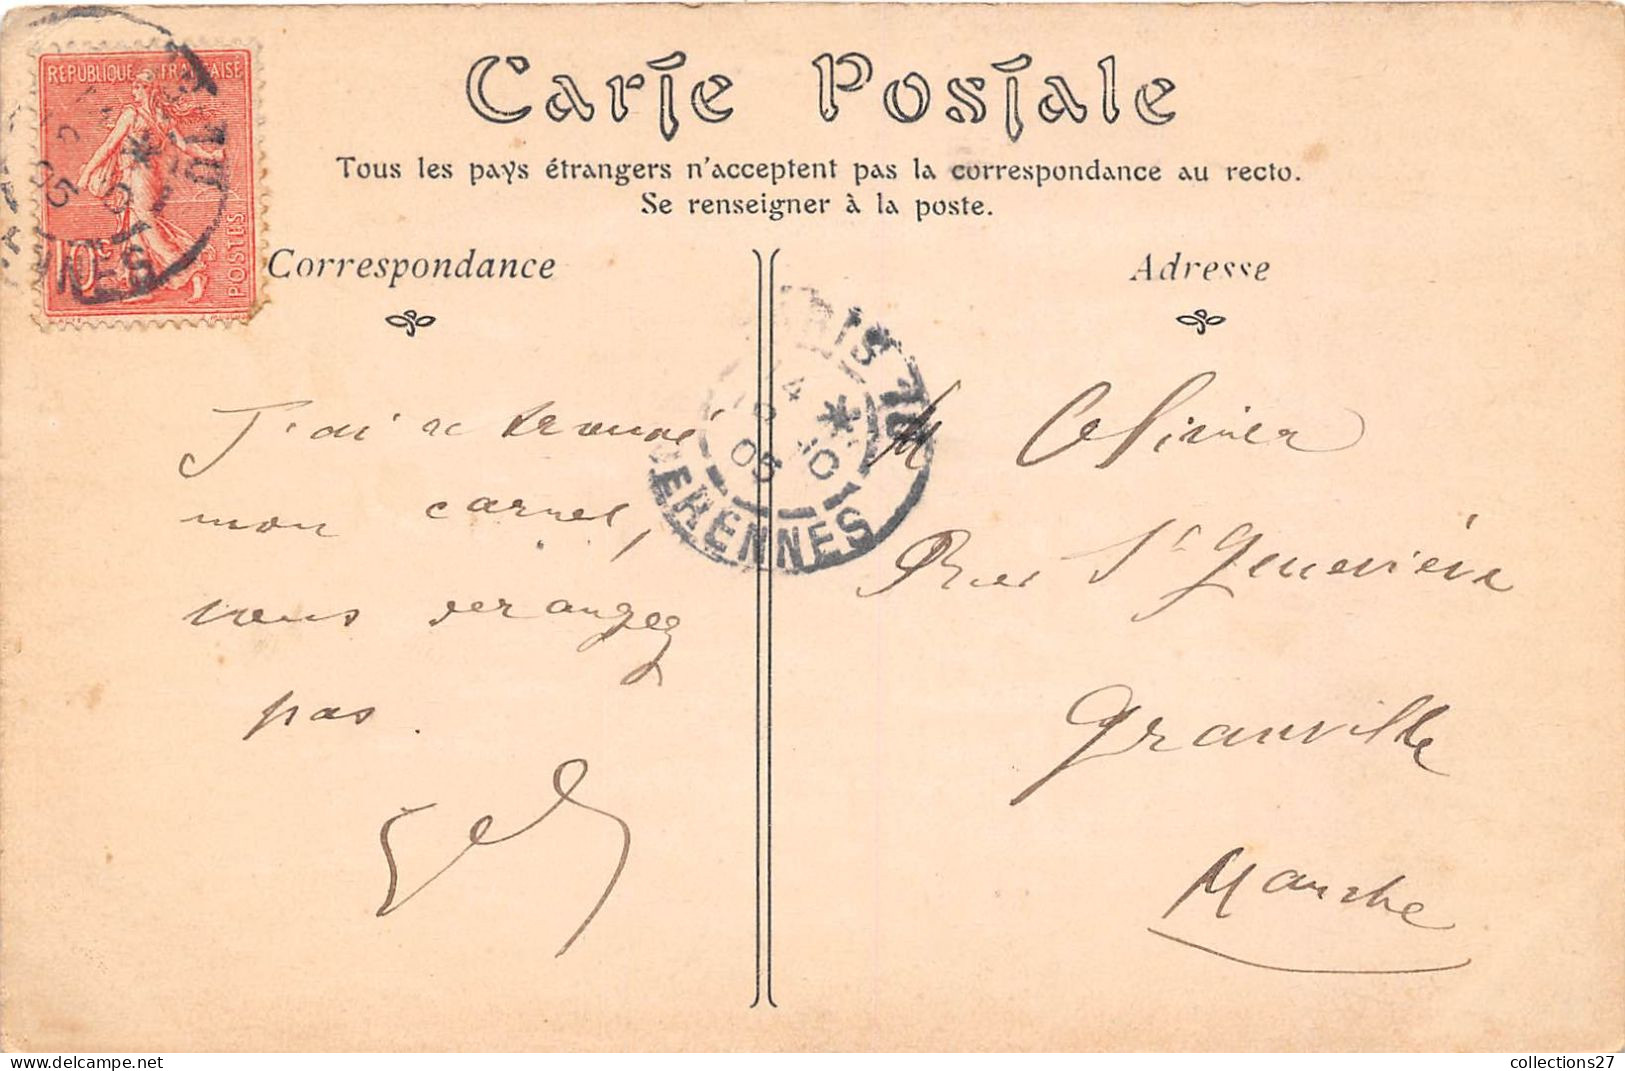 RÉPUBLIQUE FRANÇAISE
10c
POSTES
Carte Postale
Tous les pays étrangers n'acceptent pas la correspondance au recto.
Se renseigner à la poste.
Correspondance
Adresse
J'ai retrouvé
mon carnet,
vous derangez
pas.
PARIS
14
10
05
ERENNES
M
Rue St Geneviève
Granville
Manche
collections27